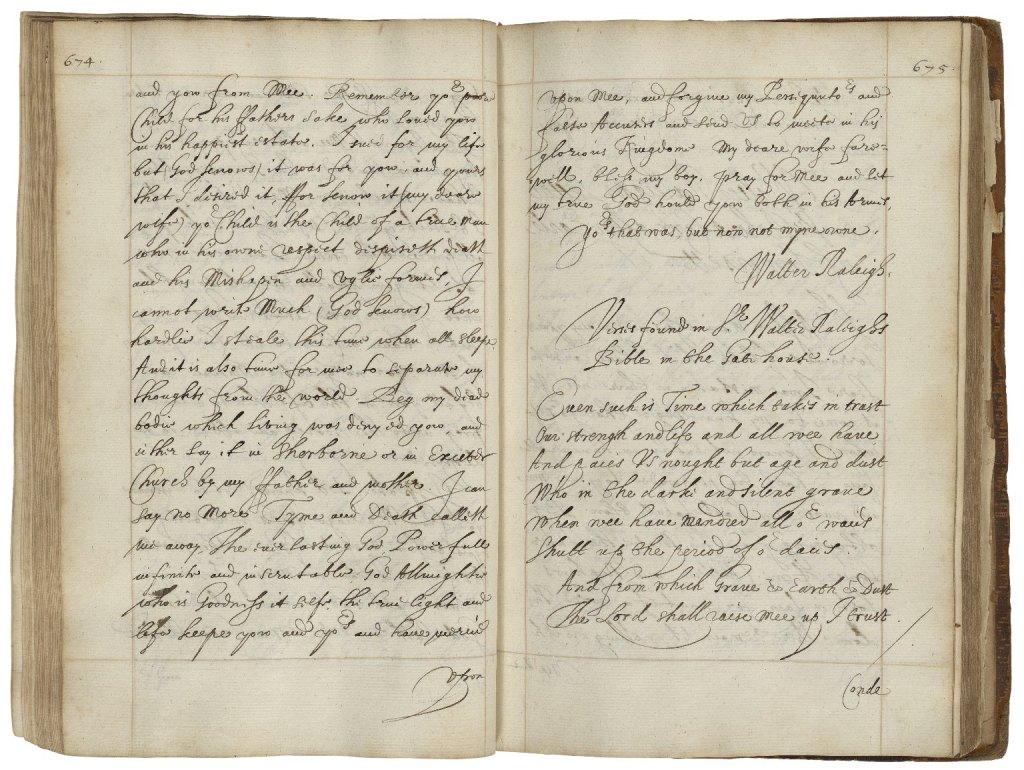 674.
and yow from Mee. Remember yor poore
Child for his ffathers sake who loved yow
in his happiest estate. I sued for my life
but (God knows) it was for yow and yours
that I disired it, ffor know it (my deare
wife) yor Child is the Child of a true Man
who in his owne respect dispiseth Death
and his Mishapen and Uglie formes, I
cannot write Much (God knows) how
hardlie I steale this time when all sleepe.
And it is also time for mee to separate my
thoughts from the world Beg my dead
bodie which living was denyed yow, and
either lay it in Sherborne or in Exceter
Church by my ffather and mother I can
say no More Tyme and Death calleth
me away. The everlasting God Powerfull
infinite and inscrutable God Allmightie
who is Goodness it selfe the true light and
life keepe yow and yors and have mercie
Upon
675.
Upon Mee, and forgive my Persequutors and
false Accusers and send Us to meete in his
glorious Kingdome My deare wife fare=
well, bless my boy, pray for Mee and let
my true God hould yow both in his Armes,
Yors that was, but now not myne owne.
Walter Raleigh.
Verses found in Sr Walter Raleighs
Bible in the Gate house.
Even such is Time which takes in trast
Our strength and life and all wee have
And paies Us nought but age and dust
Who in the darke and silent grave
When wee have Wandred all or waies
Shutt up the period of or daies.
And from which Grave & Earth & Dust
The Lord shall raise Mee up I trust.
Conde